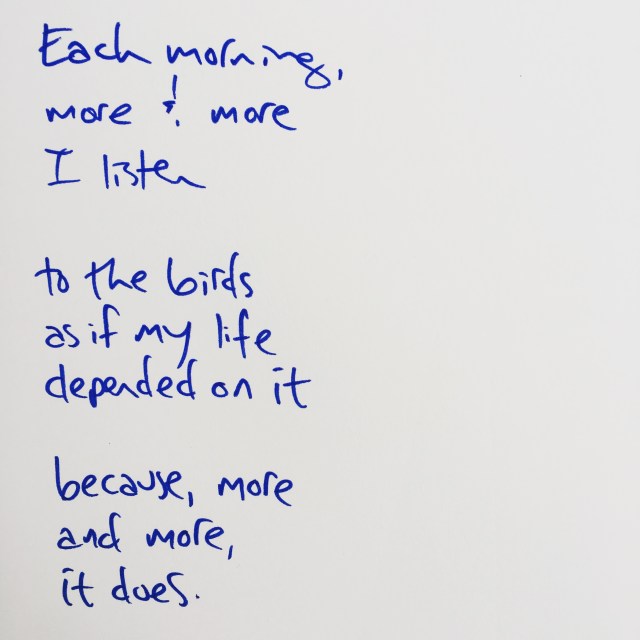 Each morning,
more & more
I listen
to the birds
as if my life
depended on it
because, more
and more,
it does.